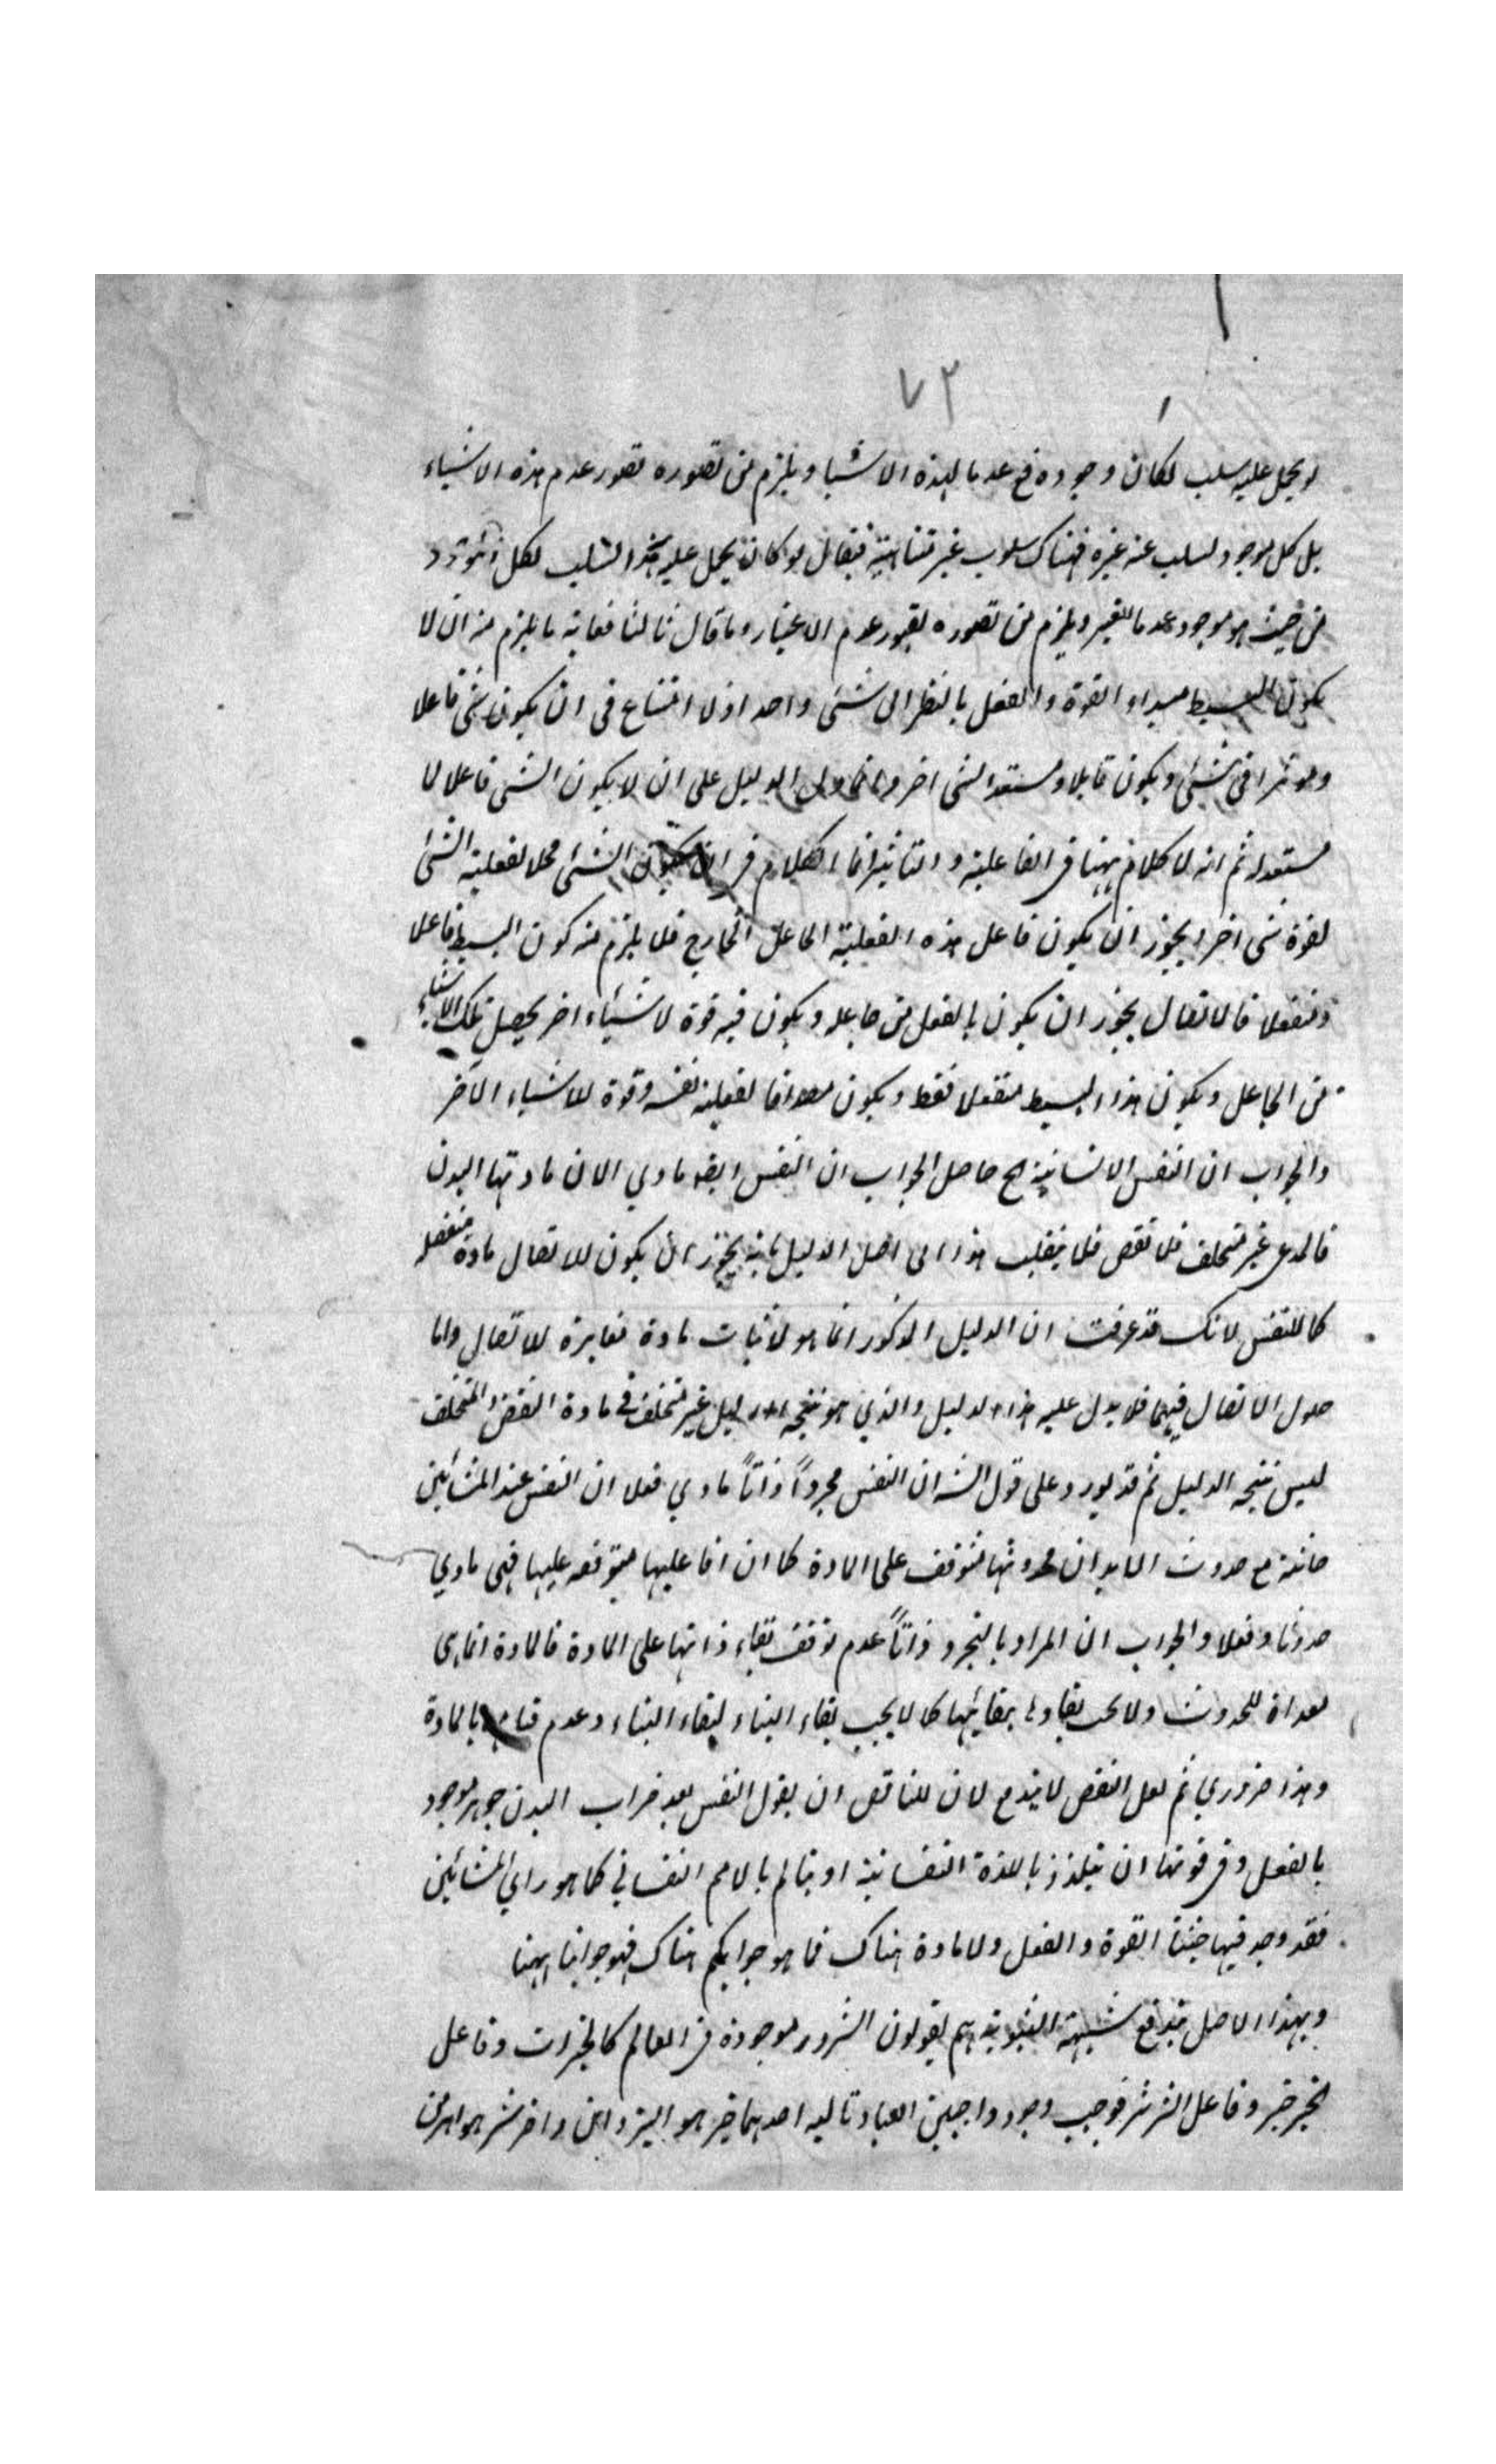 ٧٢
لو يحمل عليه سلب لكان وجوده فى عدما لهذه الاشيا ويلزم من تصوره تصور عدم هذه الاشياء
بل كل موجود لسلب عنه غيره فهناك سلوب غير متناهية فيقال لو كان يحمل عليه هذا السلب لكل
من حيث هو موجود عدما للغير ويلزم من تصوره تصور عدم الاغيار وما قال ثالثا فغاية ما يلزم منه ان لا
يكون البسيط مبداء القوة والفعل بالنظر الى شئ واحد اذ لا امتناع فى ان يكون شئ فاعلا
وموثرا فى شئ ويكون قابلا ومستعدا لشئ اخر وانما دل الدليل على ان لا يكون الشئ فاعلا لما
مستعد له ثم انه لا كلام ههنا فى الفاعلية والتاثير انما الكلام فى ان يكون الشئ محلا لفعلية الشئ
لقوة شئ اخر ويجوز ان يكون فاعل هذه الفعلية الجاعل الخارج فلا يلزم منه كون البسيط فاعلا
ومنفعلا فالاتصال يجوز ان يكون بالفعل من جاعله ويكون فيه قوة لاشياء اخر يحصل تلك الاشياء
من الجاعل ويكون هذا البسيط منفعلا فقط ويكون مصداقا لفعلية نفسه وقوة للاشياء الآخر
والجواب ان النفس الانسانية الخ حاصل الجواب ان النفس ايضا مادي الا ان مادتها البدن
فالمدعى غير متخلف فلا نقض فلا ينقلب هذا الى اصل الدليل بانه يجوز ان يكون للاتصال مادة منفصلة
كما للنفس لانك قد عرفت ان الدليل المذكور انما هو لاثبات مادة مغايرة للاتصال واما
حلول الاتصال فيها فلا يدل عليه هذا الدليل والذي هو نتيجة الدليل غير متخلف فى مادة النقض والمتخلف
ليس نتيجة الدليل ثم قد يورد على قول الش ان النفس مجرداً ذاتاً مادي فعلا ان النفس عند المشائين
حادثة مع حدوث الابدان فحدوثها متوقف على المادة كما ان افاعليها متوقفه عليها فهى مادي
حدوثا وفعلا والجواب ان المراد بالتجرد ذاتاً عدم توقف بقاء ذاتها على المادة فالمادة انما هى
معداة للحدوث ولا يجب بقاؤها ببقائها كما لا يجب بقاء البناء لبقاء البناء وعدم قيامها بالمادة
وهذا ضروري ثم لعل النقض لا يندفع لان للناقض ان يقول النفس بعد خراب البدن جوهر موجود
بالفعل وفى قوتها ان يتلذذ باللذة النفسانية او يتالم بالالم النفساني كما هو راي المشائين
فقد وجد فيها حيثيتا القوة والفعل ولا مادة هناك فما هو جوابكم هناك فهو جوابنا ههنا
وبهذا الاصل يندفع شبهة الثنوية هم يقولون الشرور موجودة فى العالم كالخيرات وفاعل
الخير خير وفاعل الشر شر فوجب وجود واجبين احدهما خير هو اليزدان واخر شر هو اهرمن